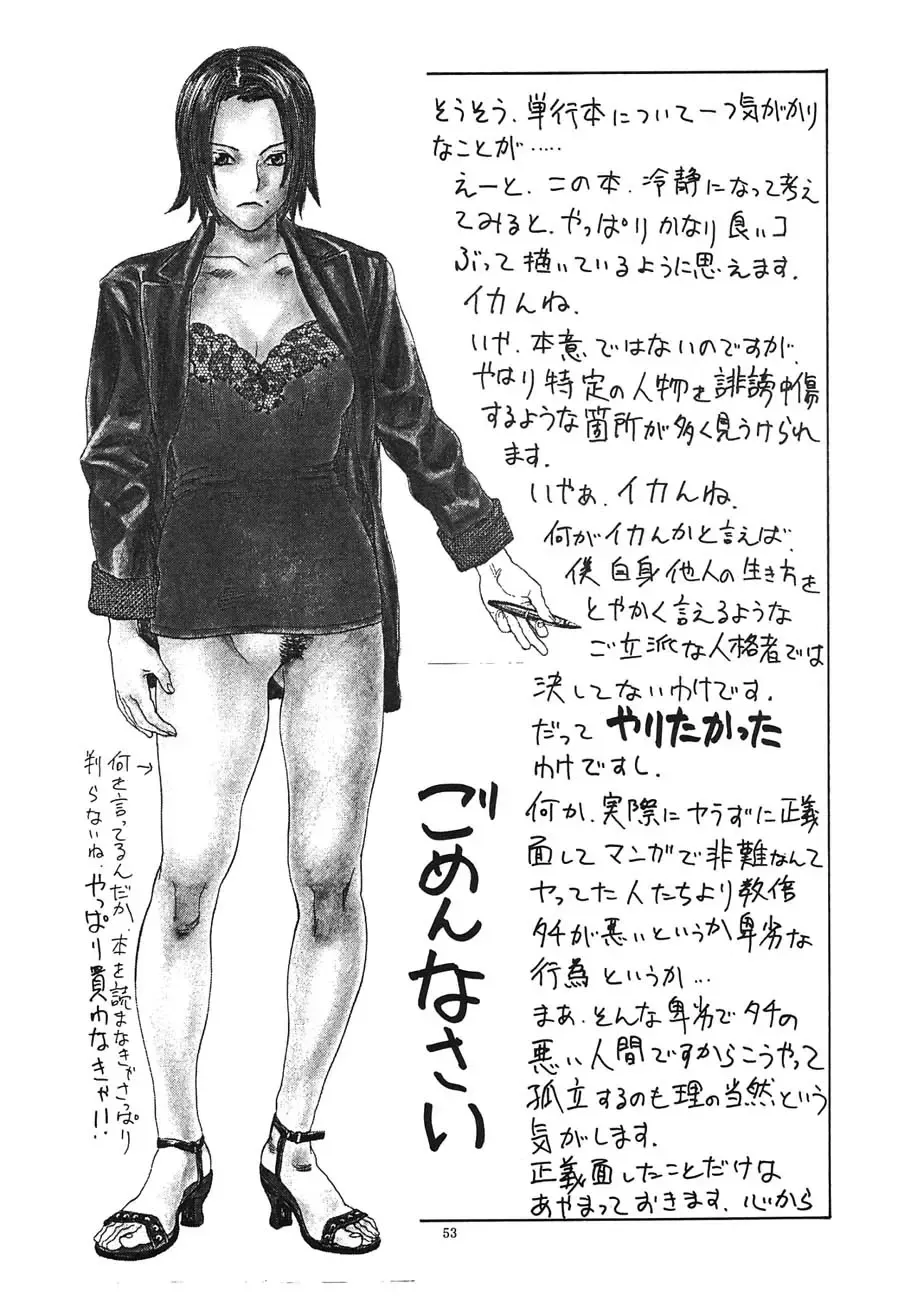 そうそう、単行本について一つ気がかり
なことが‥‥‥
えーと、この本、冷静になって考え
てみると、やっぱりかなり良いコ
ぶって描いているように思えます。
イカんね。
いや、本意ではないのですが、
やはり特定の人物を誹謗中傷
するような箇所が多く見うけられ
ます。
いやぁ、イカんね。
何がイカんかと言えば、
僕自身他人の生き方を
とやかく言えるような
ご立派な人格者では
決してないわけです。
だってやりたかった
わけですし。
何か、実際にヤらずに正義
面してマンガで非難なんて
ヤってた人たちより数倍
タチが悪いというか卑劣な
行為というか…
まあ、そんな卑劣でタチの
悪い人間ですからこうやって
孤立するのも理の当然という
気がします。
正義面したことだけは
あやまっておきます。心から
ごめんなさい
→何を言ってるんだか、本を読まなきゃさっぱり
判らないね、やっぱり買わなきゃ!!
53